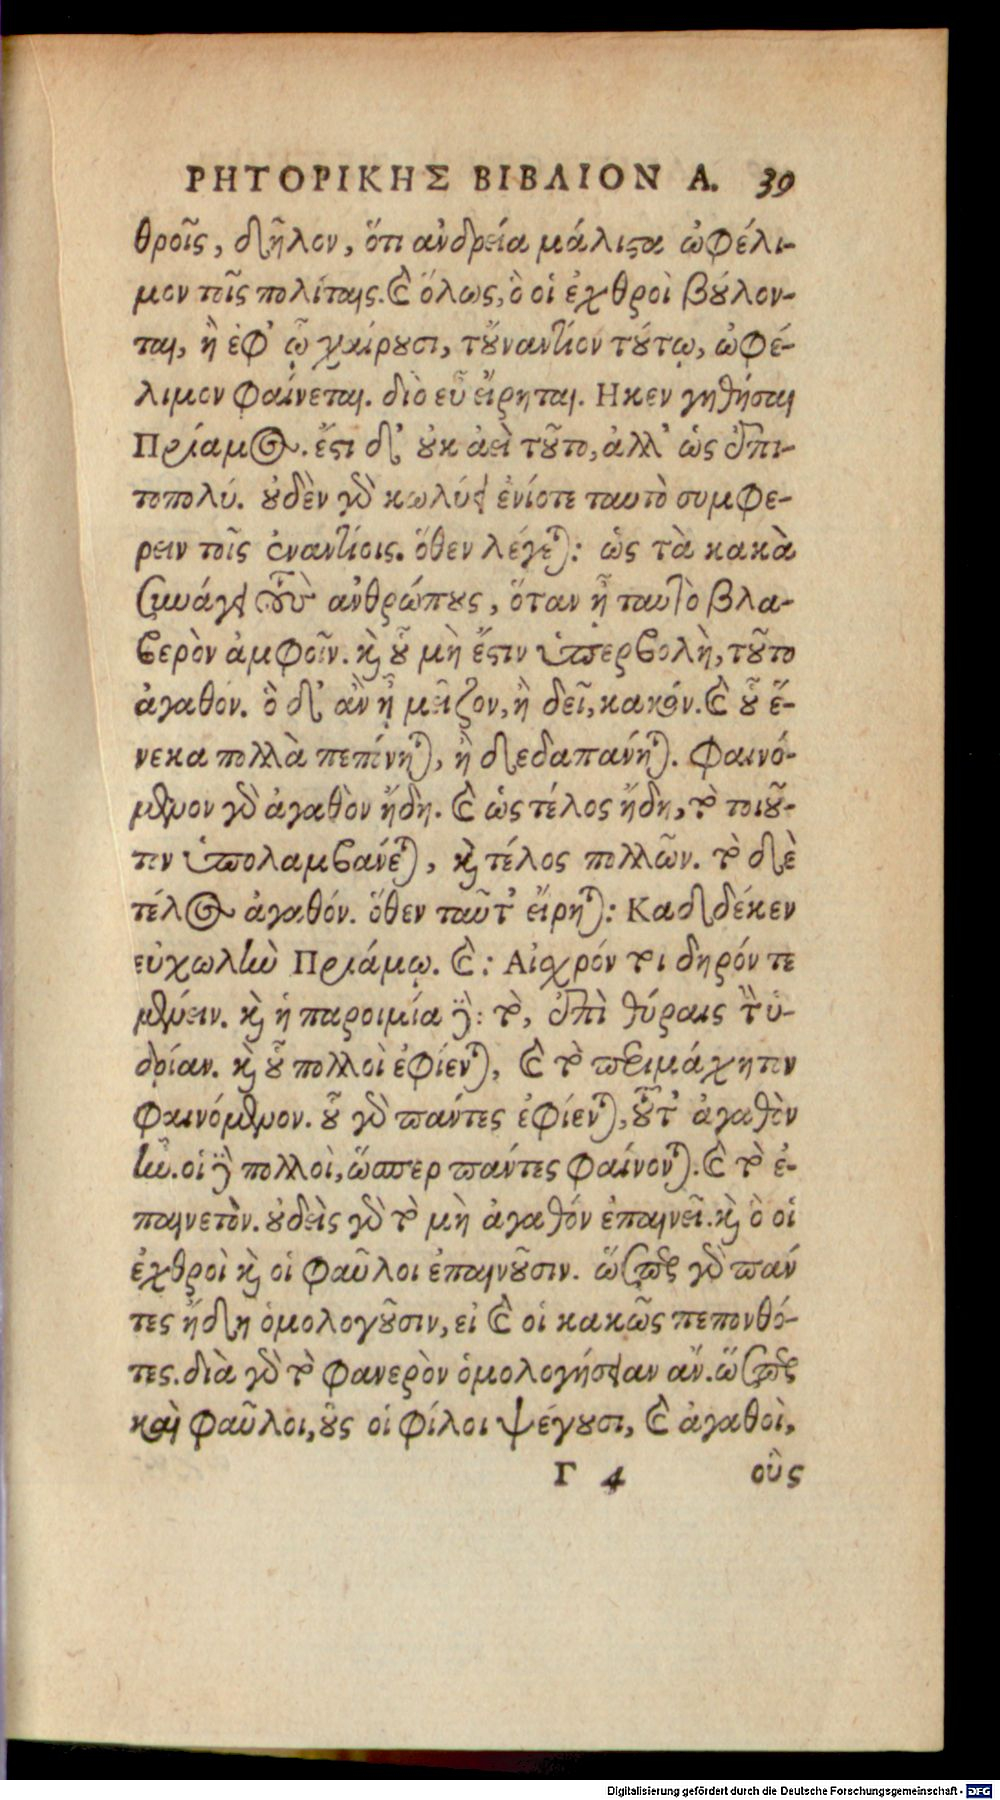 ΡΗΤΟΡΙΚΗΣ ΒΙΒΛΙΟΝ Α. 39
θροῖς, δῆλον, ὅτι ἀνδρεία μάλιστα ὠφέλι-
μον τοῖς πολίταις. καὶ ὅλως, ὃ οἱ ἐχθροὶ βούλον-
ται, ἢ ἐφ' ᾧ χαίρουσι, τοὐναντίον τούτῳ, ὠφέ-
λιμον φαίνεται. διὸ εὖ εἴρηται. Η κεν γηθήσαι
Πρίαμος. ἔστι δ' οὐκ ἀεὶ τοῦτο, ἀλλ' ὡς ἐπι-
τοπολύ. οὐδὲν γὰρ κωλύει ἐνίοτε ταυτὸ συμφέ-
ρειν τοῖς ἐναντίοις. ὅθεν λέγεται: ὡς τὰ κακὰ
συνάγει τοὺς ἀνθρώπους, ὅταν ᾖ ταυτὸ βλα-
βερὸν ἀμφοῖν. καὶ οὗ μὴ ἔστιν ὑπερβολὴ, τοῦτο
ἀγαθόν. ὃ δ' ἂν ᾖ μεῖζον, ἢ δεῖ, κακόν. καὶ οὗ ἕ-
νεκα πολλὰ πεπόνηται, ἢ δεδαπάνηται. φαινό-
μενον γὰρ ἀγαθὸν ἤδη. καὶ ὡς τέλος ἤδη, τὸ τοιοῦ-
τον ὑπολαμβάνεται, καὶ τέλος πολλῶν. τὸ δὲ
τέλος ἀγαθόν. ὅθεν ταῦτ' εἴρηται: Καδδέκεν
εὐχωλὴν Πριάμῳ. καὶ: Αἰσχρόν τοι δηρόν τε
μένειν. καὶ ἡ παροιμία δὲ: τὸ, ἐπὶ θύραις τὴν ὑ-
δρίαν. καὶ οὗ πολλοὶ ἐφίενται, καὶ τὸ περιμάχητον
φαινόμενον. οὗ γὰρ πάντες ἐφίενται, τοῦτ' ἀγαθὸν
ἦν. οἱ δὲ πολλοὶ, ὥσπερ πάντες φαίνονται. καὶ τὸ ἐ-
παινετόν. οὐδεὶς γὰρ τὸ μὴ ἀγαθόν ἐπαινεῖ. καὶ ὃ οἱ
ἐχθροὶ καὶ οἱ φαῦλοι ἐπαινοῦσιν. ὥσπερ γὰρ πάν
τες ἤδη ὁμολογοῦσιν, εἰ καὶ οἱ κακῶς πεπονθό-
τες. διὰ γὰρ τὸ φανερὸν ὁμολογήσειαν ἄν. ὥσπερ
καὶ φαῦλοι, οὓς οἱ φίλοι ψέγουσι, καὶ ἀγαθοὶ,
Γ 4 οὓς
Digitalisierung gefördert durch die Deutsche Forschungsgemeinschaft - DFG